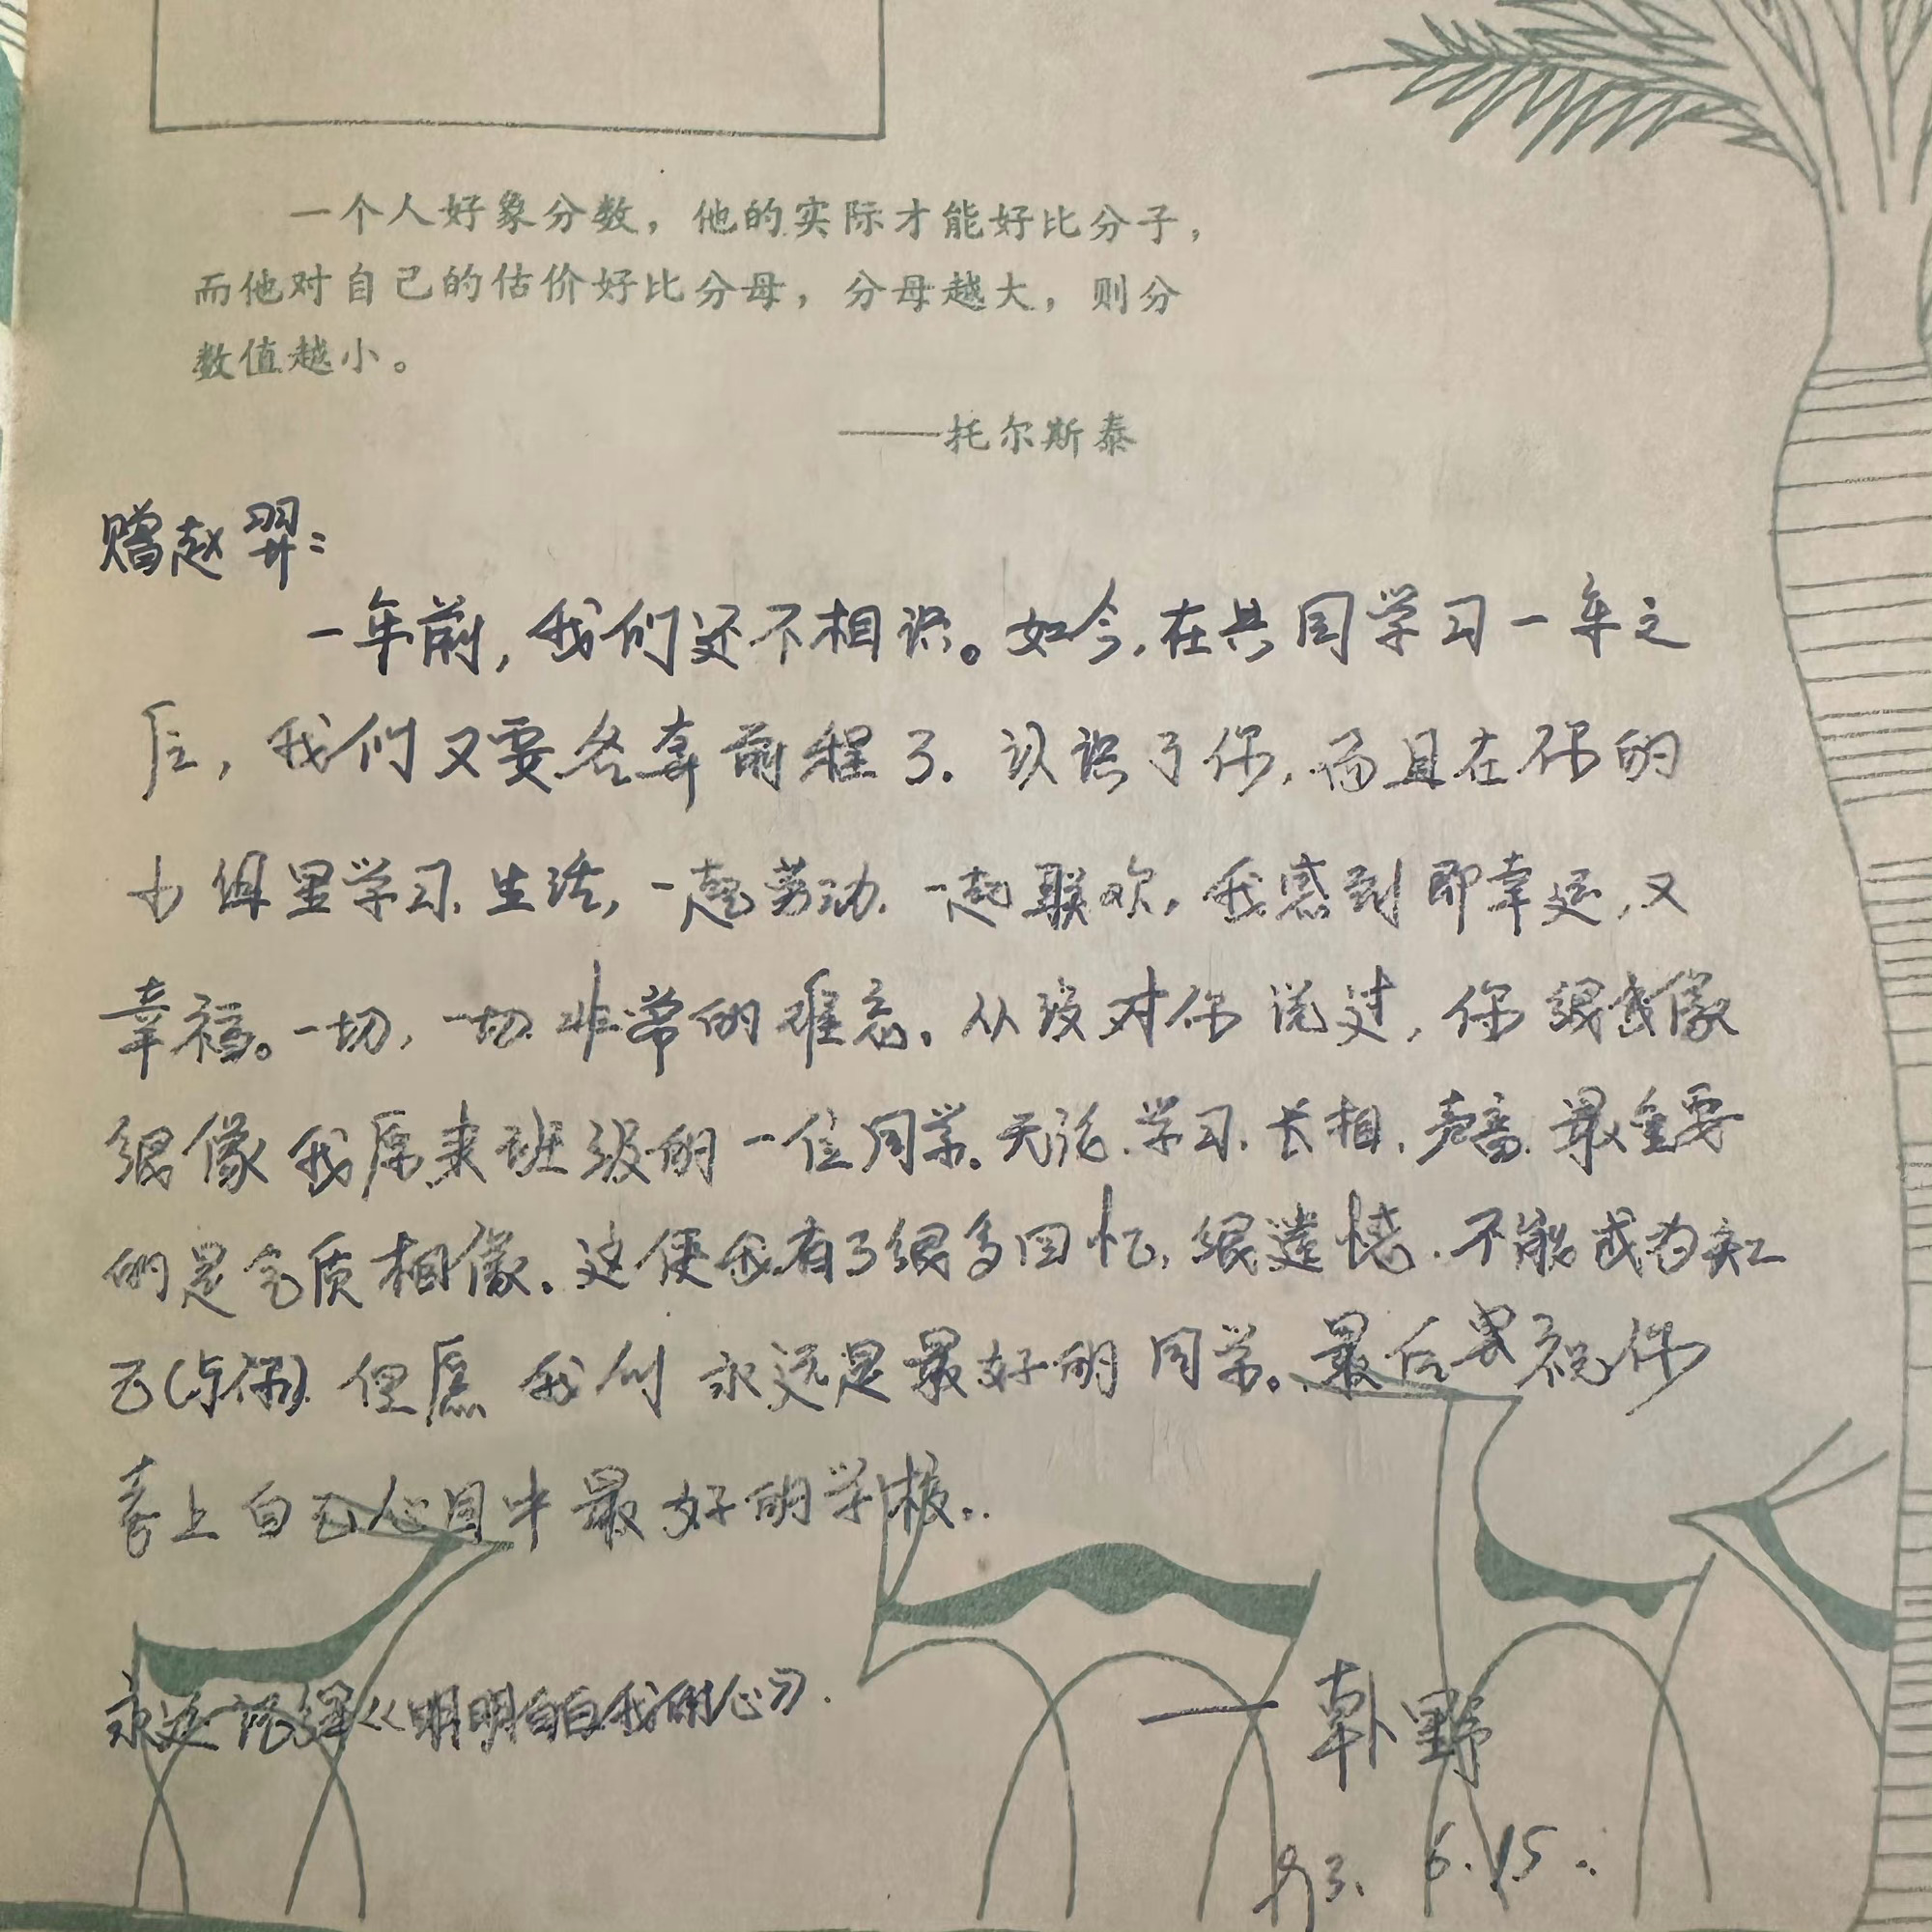 一个人好象分数，他的实际才能好比分子，
而他对自己的估价好比分母，分母越大，则分
数值越小。
——托尔斯泰
赠赵羿：
一年前，我们还不相识。如今，在共同学习一年之
后，我们又要各奔前程了．认识了你，而且在你的
小组里学习、生活，一起劳动、一起联欢，我感到即幸运，又
幸福。一切，一切非常的难忘。从没对你说过，你很像
很像我原来班级的一位同学。无论学习、长相、声音、最重要
的是气质相像。这使我有了很多回忆，很遗憾．不能成为知
己(与你)．但愿我们永远是最好的同学。最后祝你
考上自己心目中最好的学校．
永远记得《明明白白我的心》．
——韩野
93、6.15.